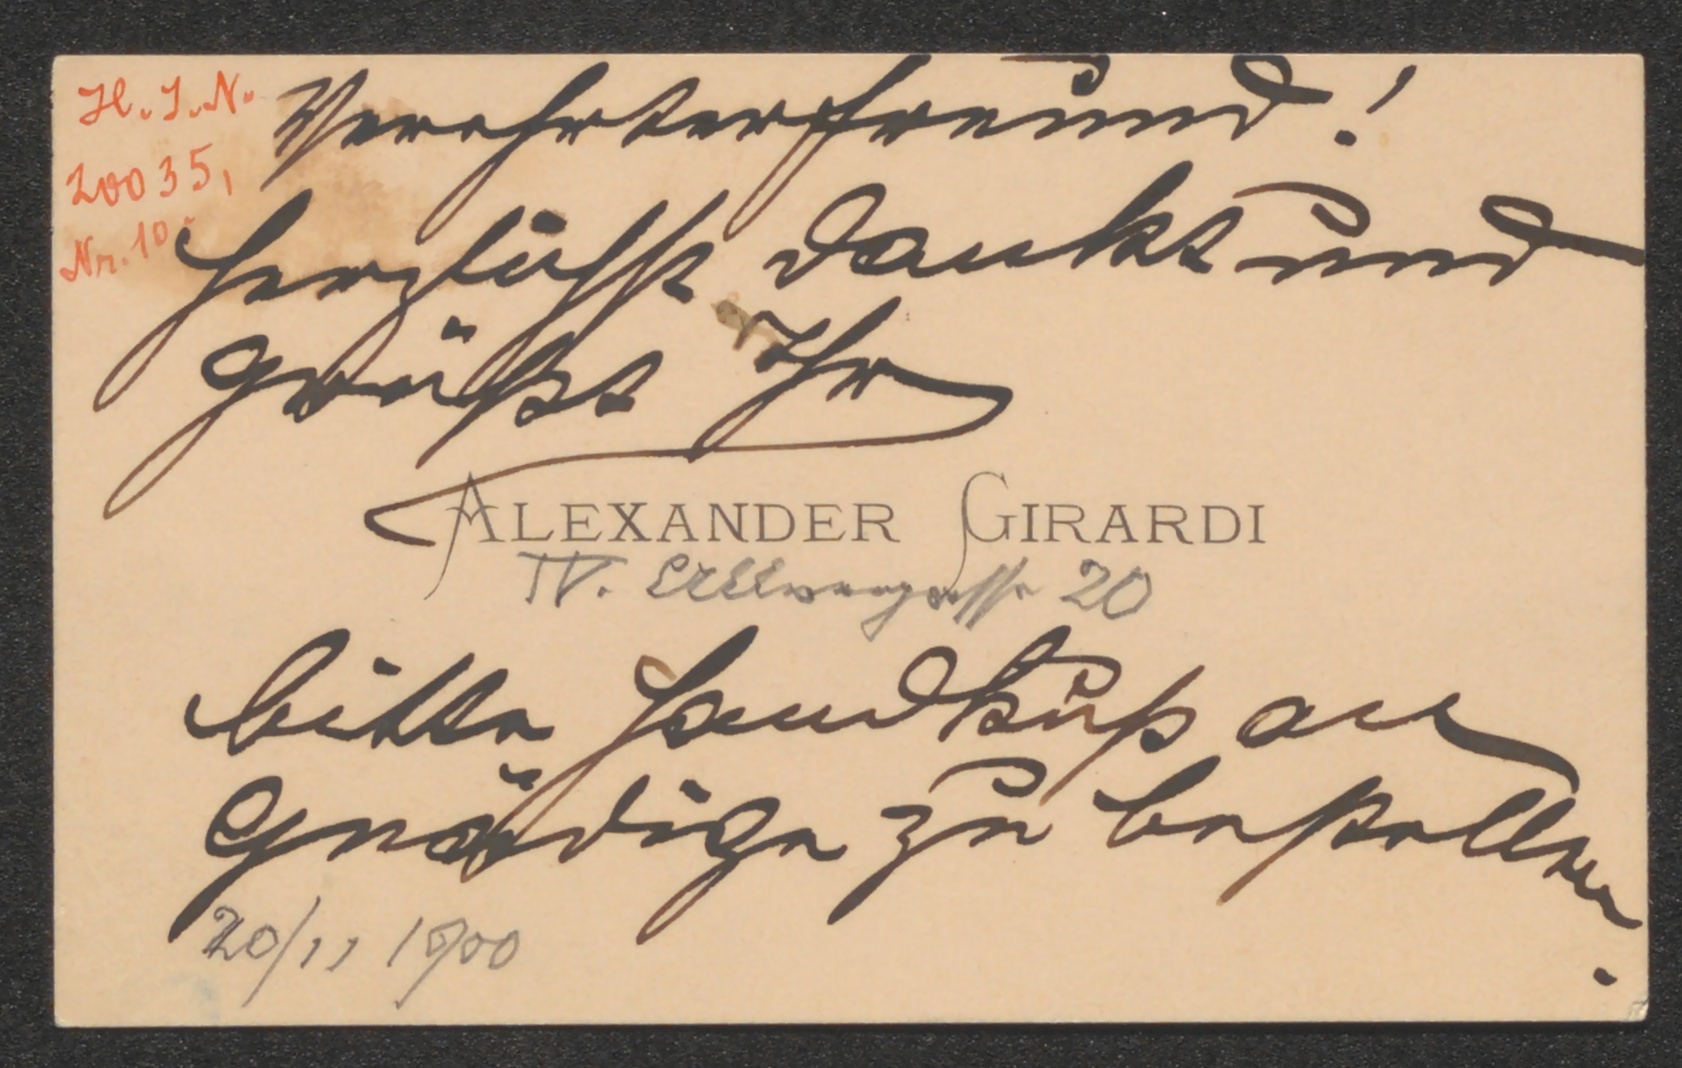 H.I.N.
20035,
Nr. 10
Verehrter freund!
herzlichst dankt und
grüßt Ihr
ALEXANDER GIRARDI
IV. 20
bitte Handkuß an
Gnädige zu bestellen.
20/11 1900